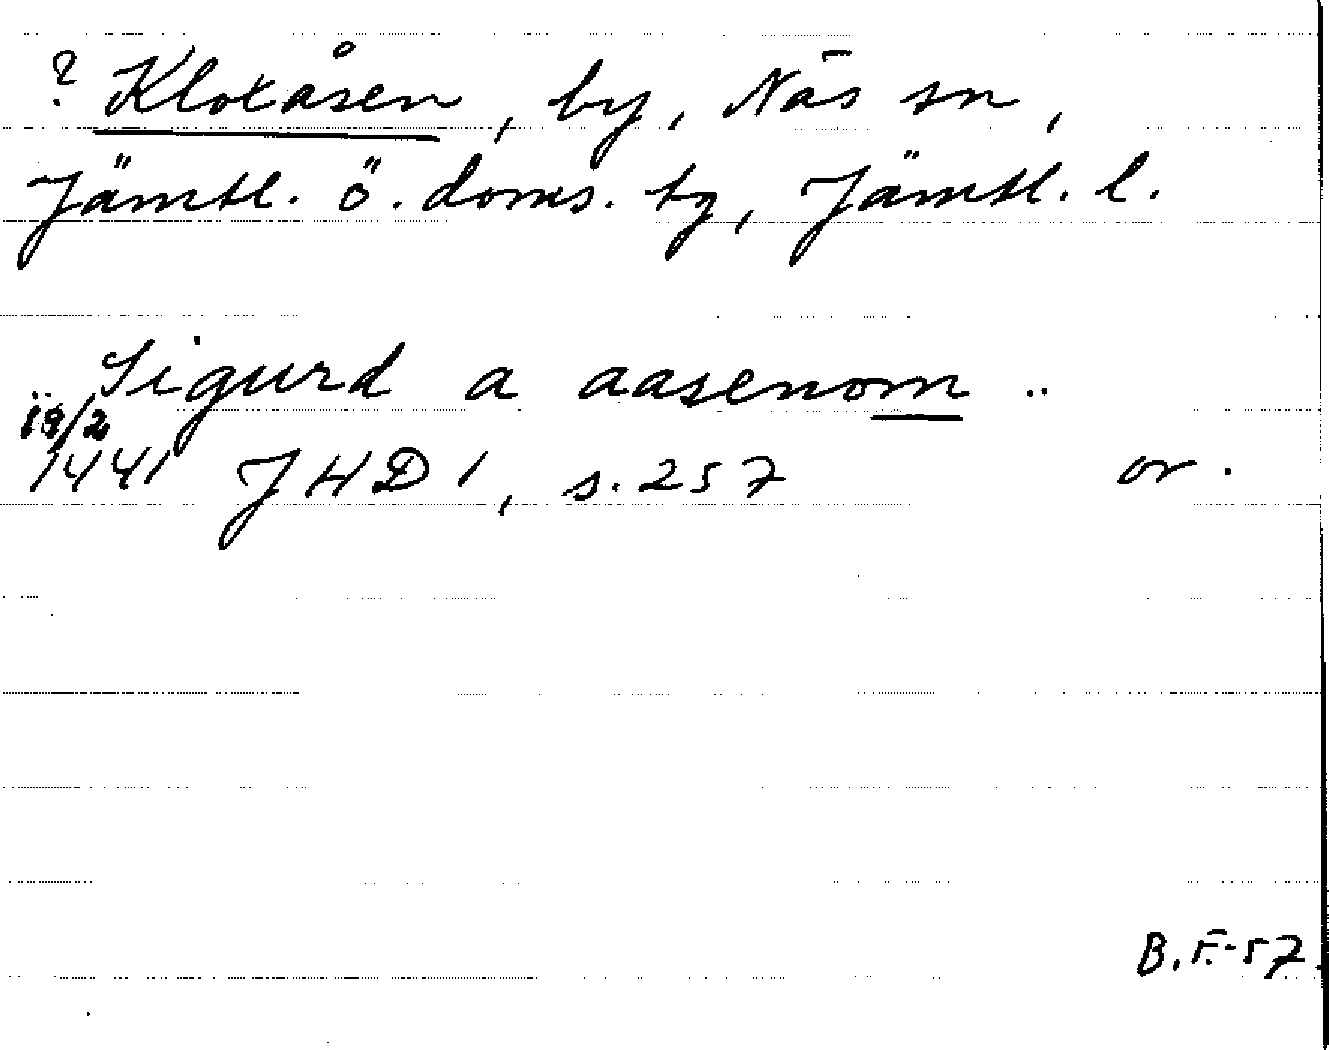 ? Kloxåsen, by, Näs sn,
Jämtl. ö. doms. tg, Jämtl. l.
Sigurd a aasenom ..
19/2
1441 JHD 1, s. 257 or.
B.F.-57